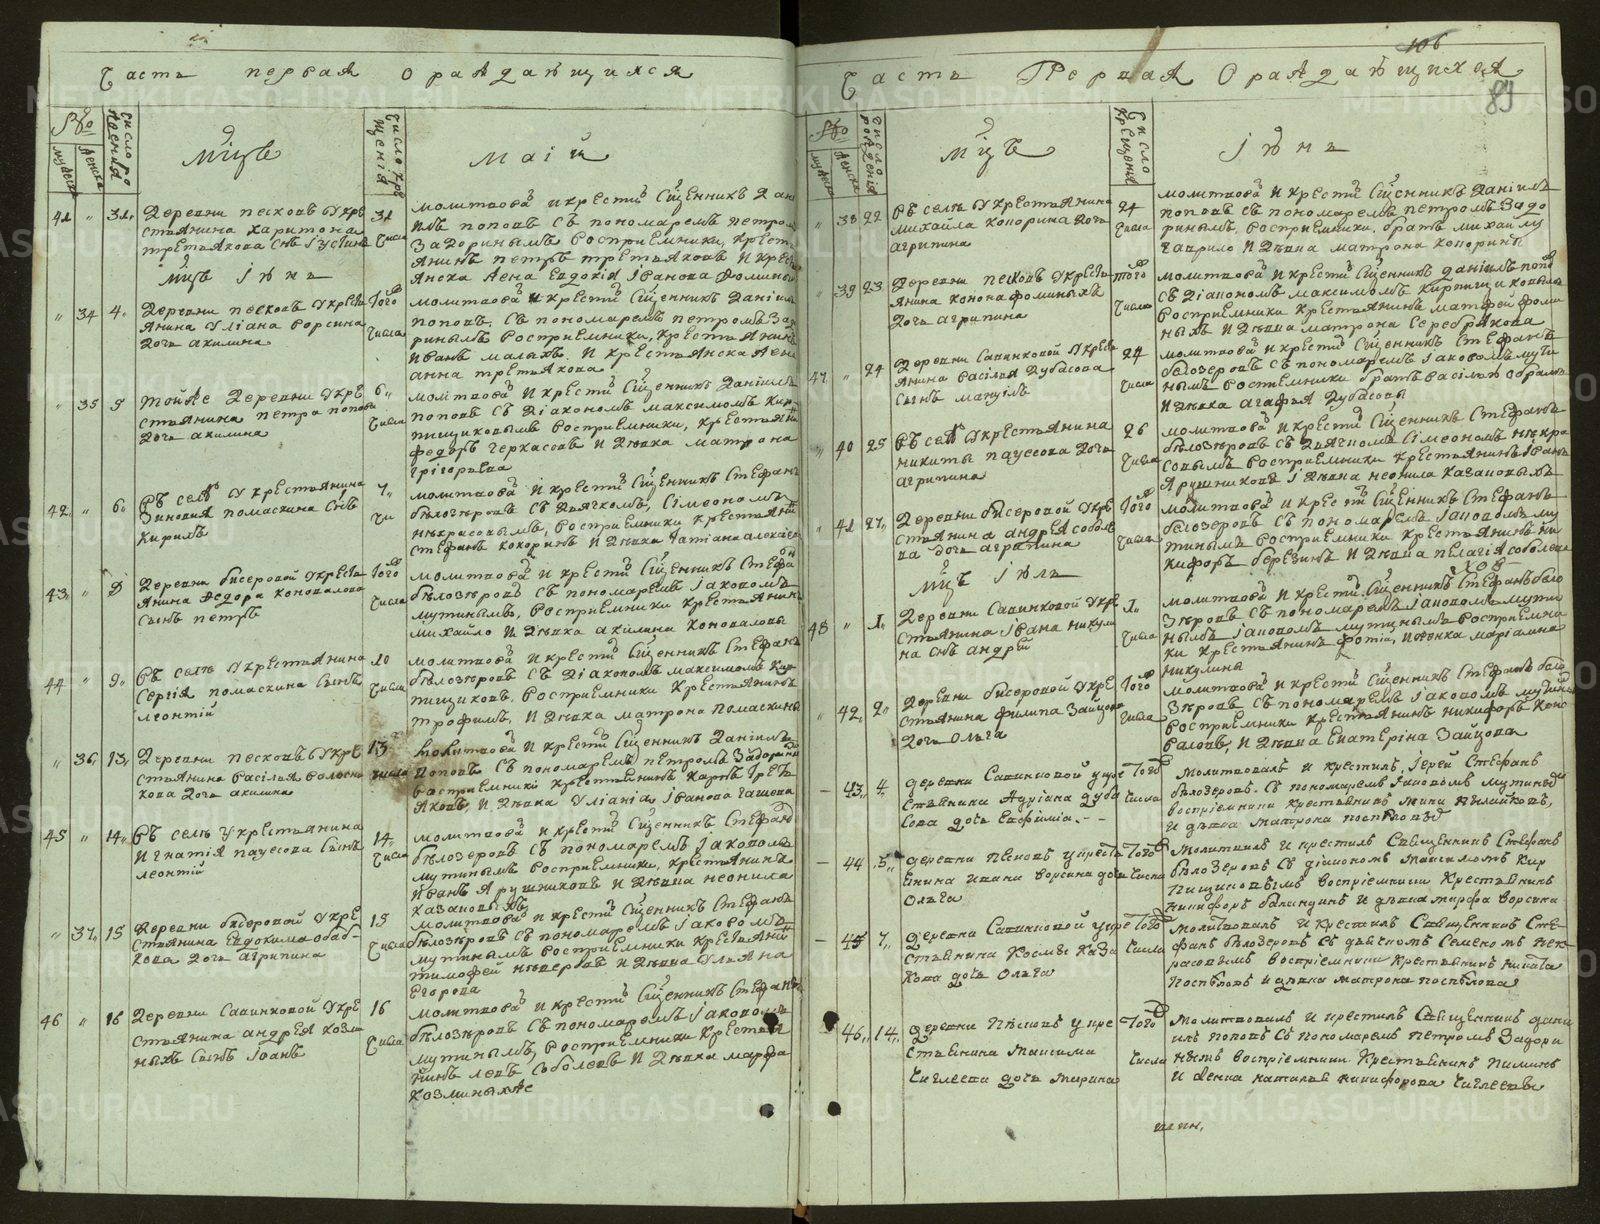 Часть первая ораждающихся
Мцъ маiи
41 " 31 Деревни песковъ Укре
стьянина харитона
третьякова снъ Густинъ
31
числа
молитвова и крести Сщенникъ Дан
илъ поповъ Съ пономаремъ петром
Задоринымъ Восприемники, крест
Мцъ Iюнь
" 34 4 Деревни песковъ Укресть
янина Улiана ворсина
дочь акилина
Того
числа
молитвова и крести Сщенникъ Данiилъ
поповъ, Съ пономаремъ петромъ Зад
ринымъ Восприемники, Крестьянинъ
Иванъ малыхъ. И крестьянска жена
анна третьякова
" 35 5 Тойже Деревни Укре
стьянина петра попова
дочь акилина
6
числа
молитвова И крести Сщенникъ Данiилъ
поповъ Съ Дiакономъ максимомъ Кир
пищиковымъ Восприемники, крестьяни
федоръ Черкассовъ И Дѣвка матрона
григорьева
42 " 6 Въ селѣ Укрестьянина
Зиновия помаскина Снъ
Кирилъ
7
чи
молитвова И крести Сщенникъ Стефанъ
бѣлозѣровъ Съ Дьячкомъ, Сiмеономъ
некрасовымъ, Восприемники Крестьяни
Стефанъ кокоринъ И Дѣвка Татiана алексѣева
43 " 8 Деревни бисеровой Укресть
янина Федора коновалова
Сынъ петръ
Того
числа
молитвова И крести Сщенникъ Стефа
бѣлозѣровъ Съ пономаремъ Iаковомъ
мутинымъ, Восприемники крестьянин
михайло И Дѣвка акилина Коноваловы
44 " 9 Въ селѣ Укрестьянина
Сергiя помаскина Сынъ
леонтiй
10
числа
молитвова И крести Сщенникъ Стефанъ
бѣлозѣровъ Съ Дiакономъ максимомъ Кир
пищиковъ, Восприемники Крестьянинъ
трофимъ, И Дѣвка матрона помаскины
" 36 13 Деревни песковъ Укре
стьянина василья волосни
кова дочь акилина
13
числа
молитвова И крести Сщенникъ Данiилъ
поповъ Съ пономаремъ петромъ Задорины
восприемники крестьянинъ карпъ Треть
яковъ, И Дѣвка Улiанiа Iванова
45 " 14 Въ селѣ Укрестьянина
Игнатiя паусова Сынъ
леонтiй
14
числа
молитвова И крести Сщенникъ Стефанъ
бѣлозѣровъ Съ пономаремъ Iаковомъ
мутинымъ Восприемники, крестьянинъ
Иванъ Ярушниковъ И Дѣвка неонила
казановыхъ
" 37 15 Деревни бисеровой Укре
стьянина Евдокима обаб
кова дочь агрипина
15
числа
молитвова И крести Сщенникъ Стефанъ
бѣлозѣровъ Съ пономаремъ Iаковомъ
мутинымъ Восприемники Крестьяни
тимофей невѣровъ И Дѣвка Ульяна
Егорова
46 " 16 Деревни Савинковой Укре
стьянина андрея козми
ныхъ Сынъ Iоанъ
16
числа
молитвова И крести Сщенникъ Стефанъ
бѣлозѣровъ Съ пономаремъ Iаковомъ
мутинымъ, Восприемники Крестья
нинъ левъ Соболевъ И Дѣвка марфа
козминыхже
106
89
Часть Первая Ораждающихся
Мцъ Iюнь
" 38 22 Въ селѣ Укрестьянина
михайла кокорина дочь
агрипина
24
числа
молитвова И крести Сщенникъ Данiилъ
поповъ Съ пономаремъ петромъ Задо
ринымъ, Восприемники, братъ михайлу
гаврило И Дѣвка матрона кокорины
" 39 23 Деревни песковъ Укресть
янина конона фоминыхъ
Дочь агрипина
того
числа
молитвова И крести Сщенникъ данiилъ попо
Съ Дiакономъ максимомъ Кирпищиковымъ
Восприемники Крестьянинъ матфей фоми
ныхъ И Дѣвка матрона Серебрякова
47 " 24 Деревни Савинковой Укресть
янина Василья Дубасова
Сынъ мануилъ
24
числа
молитвова И крести Сщенникъ Стефанъ
бѣлозеровъ Съ пономаремъ Iаковомъ мути
нымъ
И Дѣвка агафья Дубасовы
" 40 25 Въ селѣ Укрестьянина
никиты паусова дочь
агрипина
26
числа
молитвова И крести Сщенникъ Стефанъ
бѣлозѣровъ Съ Дьячкомъ Сiмеономъ некра
совымъ Восприемники крестьянинъ Iванъ
Ярушниковъ I Дѣвка неонила Казановыхъ
" 41 27 Деревни бисеровой Укре
стьянина андрея собол
ва дочь агрипина
Того
числа
молитвова И крести Сщенникъ Стефанъ
бѣлозеровъ Съ пономаремъ Iаковомъ му
тинымъ Восприемники крестьянинъ ни
кифоръ березинъ И Дѣвка пелагiя соболева
Мцъ Iюль
48 " 1 Деревни Савинковой Укре
стьянина Iвана никули
на снъ андрей
1
числа
молитвова И крести Сщенникъ Стефанъ бѣло
зѣровъ Съ пономаремъ Iаковомъ мути
нымъ Iаковомъ мутинымъ восприемни
ки крестьянинъ фотiй, И Дѣвка марiамна
никулины
" 42 2 Деревни бисеровой Укре
стьянина филипа Зайцова
дочь ольга
Того
числа
молитвова И крести Сщенникъ Стефанъ бѣло
зѣровъ Съ пономаремъ Iаковомъ мутинымъ
Восприемники крестьянинъ никифоръ Коно
валовъ, И Дѣвка Екатерiна Зайцова
— 43 4 деревни Савинковой укре
стьянина Адрiана дуба
сова дочь Евфимiа. - -
Того
числа
Молитвовалъ и крестилъ Iерей Стефанъ
бѣлозеровъ. Съ пономаремъ Iаковомъ мутинымъ
воспрiемники крестьянинъ
и дѣвка матрона поспѣлова
— 44 5 деревни Песковъ укресть
янина ивана ворсина дочь
Ольга
Того
числа
Молитвовалъ И крестилъ Священникъ Стефанъ
бѣлозеровъ Съ дiакономъ Максимомъ Кир
пищиковымъ воспрiемники Крестьянинъ
Никифоръ баландинъ И дѣвка марфа ворсина
— 45 7 деревни Савинковой укре
стьянина Козмы Каза
кова дочь Ольга
Того
числа
Молитвовалъ И Крестилъ Священникъ Сте
фанъ бѣлозеровъ Съ дьячкомъ Семеномъ нек
расовымъ воспрiемники Крестьянинъ Никита
Поспѣловъ и дѣвка матрона поспѣлова
46 14 деревни Песковъ укре
стьянина Максима
Чиглеева дочь марина
Того
числа
Молитвовалъ И крестилъ Священникъ дани
илъ поповъ Съ пономаремъ петромъ Задори
нымъ воспрiемники Крестьянинъ Пиминъ
И жена наталья никифорова Чиглеевы